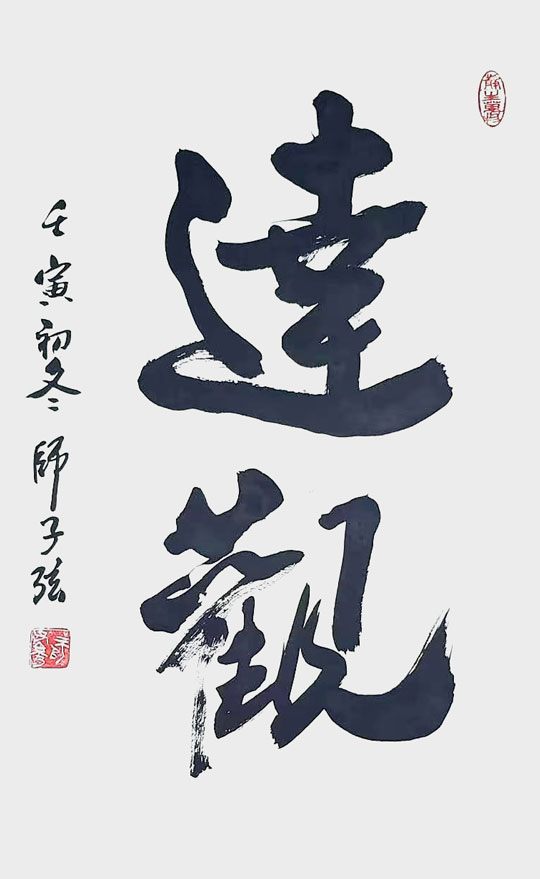 達觀
壬寅初冬 師子弦